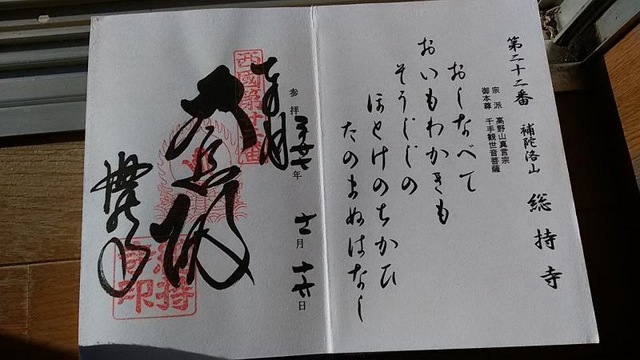 第二十二番 補陀洛山 総持寺
宗派 高野山真言宗
御本尊 千手観世音菩薩
おしなべて
おいもわかきも
そうじじの
ほとけのちかひ
たのまぬはなし
参拝 年 月 日
奉拝
西國第廿二番
大悲殿
総持寺